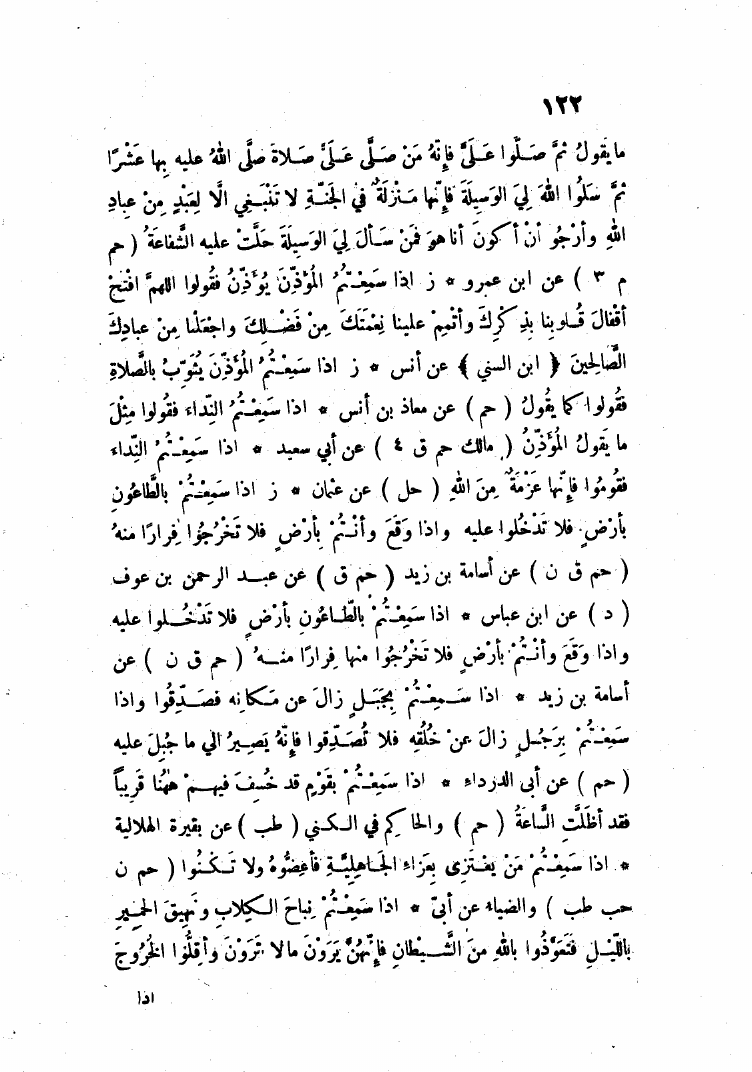 ١٢٢
ما يَقُولُ ثمَّ صَلُّوا عَلَىَّ فإِنَّهُ مَنْ صَلَّى عَلَىَّ صَلاةً صَلَّى اللهُ عليه بِها عَشْرًا
ثمَّ سَلُوا اللهَ لِيَ الوَسِيلَةَ فإِنَّها مَنْزِلَةٌ في الجَنَّةِ لا تَنْبَغِي الَّا لِعَبْدٍ مِنْ عِبادِ
اللهِ وأَرْجُو أنْ أكونَ أنا هوَ فَمَنْ سَألَ لِيَ الوَسِيلَةَ حَلَّتْ عليه الشَّفاعَةُ ( حم
م ٣ ) عن ابن عمرو * ز اذا سَمِعْتُمُ المُؤذِّنَ يُؤَذِّنُ فقُولوا اللهمَّ افْتَحْ
أقْفالَ قُلوبِنا بِذِكْرِكَ وأتْمِمْ علينا نِعْمَتَكَ مِنْ فَضْلِكَ واجْعَلْنا مِنْ عبادِكَ
الصَّالِحِينَ ( ابن السني ) عن أنس * ز اذا سَمِعْتُمُ المُؤَذِّنَ يُثَوِّبُ بالصَّلاةِ
فقُولوا كما يَقُولُ ( حم ) عن معاذ بن أنس * اذا سَمِعْتُمُ النِّداءَ فقُولوا مِثْلَ
ما يَقُولُ المُؤَذِّنُ ( مالك حم ق ٤ ) عن أبي سعيد * اذا سَمِعْتُمُ النِّداءَ
فقُومُوا فإِنَّها عَزْمَةٌ مِنَ اللهِ ( حل ) عن عثمان * ز اذا سَمِعْتُمْ بالطَّاعُونِ
بأرْضٍ فلا تَدْخُلوا عليه واذا وَقَعَ وأنْتُمْ بأرْضٍ فلا تَخْرُجُوا فِرارًا منهُ
( حم ق ن ) عن أسامة بن زيد ( حم ق ) عن عبد الرحمن بن عوف
( د ) عن ابن عباس * اذا سَمِعْتُمْ بالطَّاعُونِ بأرْضٍ فلا تَدْخُلوا عليه
واذا وَقَعَ وأنْتُمْ بأرْضٍ فلا تَخْرُجُوا منها فِرارًا منهُ ( حم ق ن ) عن
أسامة بن زيد * اذا سَمِعْتُمْ بِجَبَلٍ زالَ عن مَكانِه فصَدِّقُوا واذا
سَمِعْتُمْ بِرَجُلٍ زالَ عنْ خُلُقِه فلا تُصَدِّقوا فإِنَّهُ يَصِيرُ الي ما جُبِلَ عليه
( حم ) عن أبى الدرداء * اذا سَمِعْتُمْ بقَوْمٍ قد خُسِفَ فيهمْ هٰهُنا قَرِيباً
فقد أظَلَّتِ السَّاعَةُ ( حم ) والحاكم في الكنى ( طب ) عن بقيرة الهلالية
* اذا سَمِعْتُمْ مَنْ يَعْتَزِى بِعَزاءِ الجَاهلِيَّةِ فأَعِضُّوهُ ولا تَكْنُوا ( حم ن
حب طب ) والضياء عن أبىّ * اذا سَمِعْتُمْ نِباحَ الكِلابِ ونَهِيقَ الحَمِيرِ
باللَّيْلِ فَتَعَوَّذُوا باللهِ منَ الشَّيطانِ فإِنَّهُنَّ يَرَوْنَ مالا تَرَوْنَ وأَقِلُّوا الخُرُوجَ
اذا